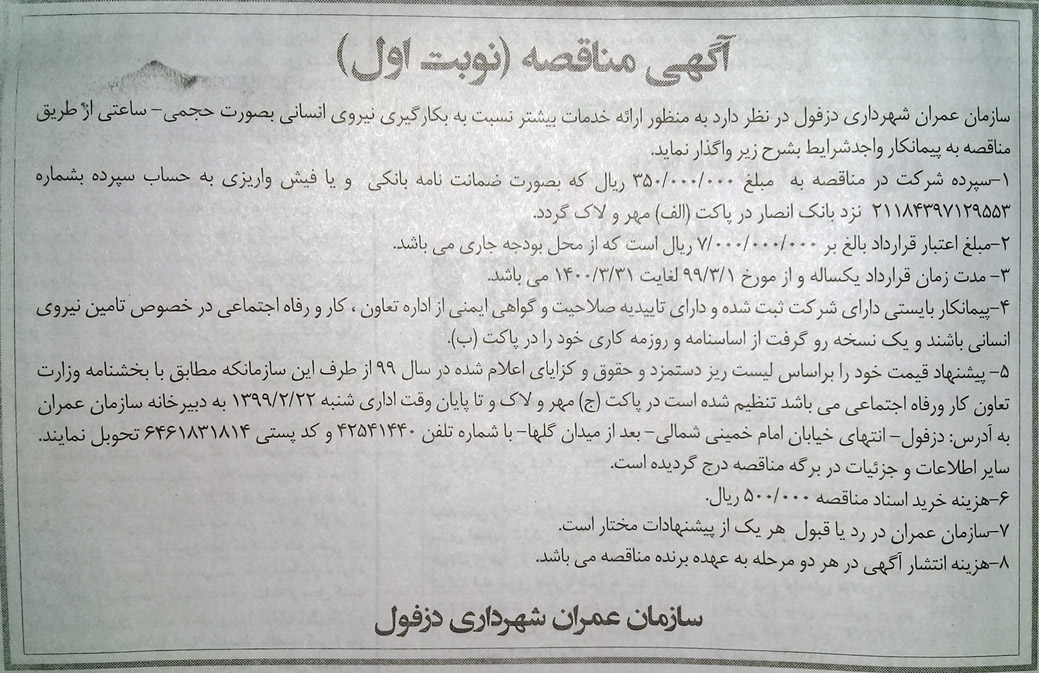 آگهی مناقصه (نوبت اول)
سازمان عمران شهرداری دزفول در نظر دارد به منظور ارائه خدمات بیشتر نسبت به بکارگیری نیروی انسانی بصورت حجمی- ساعتی از طریق
مناقصه به پیمانکار واجدشرایط بشرح زیر واگذار نماید.
۱-سپرده شرکت در مناقصه به مبلغ ۳۵۰/۰۰۰/۰۰۰ ریال که بصورت ضمانت نامه بانکی و یا فیش واریزی به حساب سپرده بشماره
۲۱۱۸۴۳۹۷۱۲۹۵۵۳ نزد بانک انصار در پاکت (الف) مهر و لاک گردد.
۲-مبلغ اعتبار قرارداد بالغ بر ۷/۰۰۰/۰۰۰/۰۰۰ ریال است که از محل بودجه جاری می باشد.
۳- مدت زمان قرارداد یکساله و از مورخ ۹۹/۳/۱ لغایت ۱۴۰۰/۳/۳۱ می باشد.
۴-پیمانکار بایستی دارای شرکت ثبت شده و دارای تاییدیه صلاحیت و گواهی ایمنی از اداره تعاون ، کار و رفاه اجتماعی در خصوص تامین نیروی
انسانی باشند و یک نسخه رو گرفت از اساسنامه و روزمه کاری خود را در پاکت (ب).
۵- پیشنهاد قیمت خود را براساس لیست ریز دستمزد و حقوق و کزایای اعلام شده در سال ۹۹ از طرف این سازمانکه مطابق با بخشنامه وزارت
تعاون کار ورفاه اجتماعی می باشد تنظیم شده است در پاکت (ج) مهر و لاک و تا پایان وقت اداری شنبه ۱۳۹۹/۲/۲۲ به دبیرخانه سازمان عمران
به آدرس: دزفول- انتهای خیابان امام خمینی شمالی- بعد از میدان گلها- با شماره تلفن ۴۲۵۴۱۴۴۰ و کد پستی ۶۴۶۱۸۳۱۸۱۴ تحویل نمایند.
سایر اطلاعات و جزئیات در برگه مناقصه درج گردیده است.
۶-هزینه خرید اسناد مناقصه ۵۰۰/۰۰۰ ریال.
۷-سازمان عمران در رد یا قبول هر یک از پیشنهادات مختار است.
۸-هزینه انتشار آگهی در هر دو مرحله به عهده برنده مناقصه می باشد.
سازمان عمران شهرداری دزفول